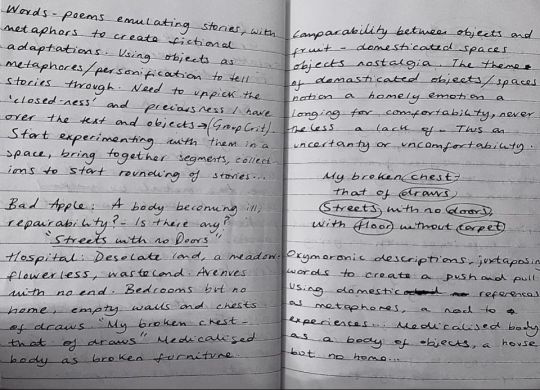 Words - poems emulating stories, with
metaphors to create fictional
adaptations. Using objects as
metaphores/personification to tell
stories through. Need to unpick the
'closed-ness' and preciousness I have
over the text and objects → (Group Crit).
Start experimenting with them in a
space, bring together segments, collect-
ions to start rounding of stories...
Bad Apple: A body becoming ill,
repairability? - Is there any?
"Streets with no Doors"
Hospital: Desolate land, a meadow
flowerless, wasteland. Avenues
with no end. Bedrooms but no
home, empty walls and chests
of draws "My broken chest -
that of draws" Medicalised
body as broken furniture.
Comparability between objects and
fruit - domesticated spaces
objects nostalgia. The theme
of domasticated objects/spaces
notion a homely emotion a
longing for comfortability, never
the less a lack of - This an
uncertanty or uncomfortability.
My broken chest-
that of draws
Streets with no doors,
With floor without carpet
Oxymoronic descriptions, juxtaposing
words to create a push and pull
Using domestic references
as metaphores, a nod to
experiences... Medicalised body
as a body of objects, a house
but no home...